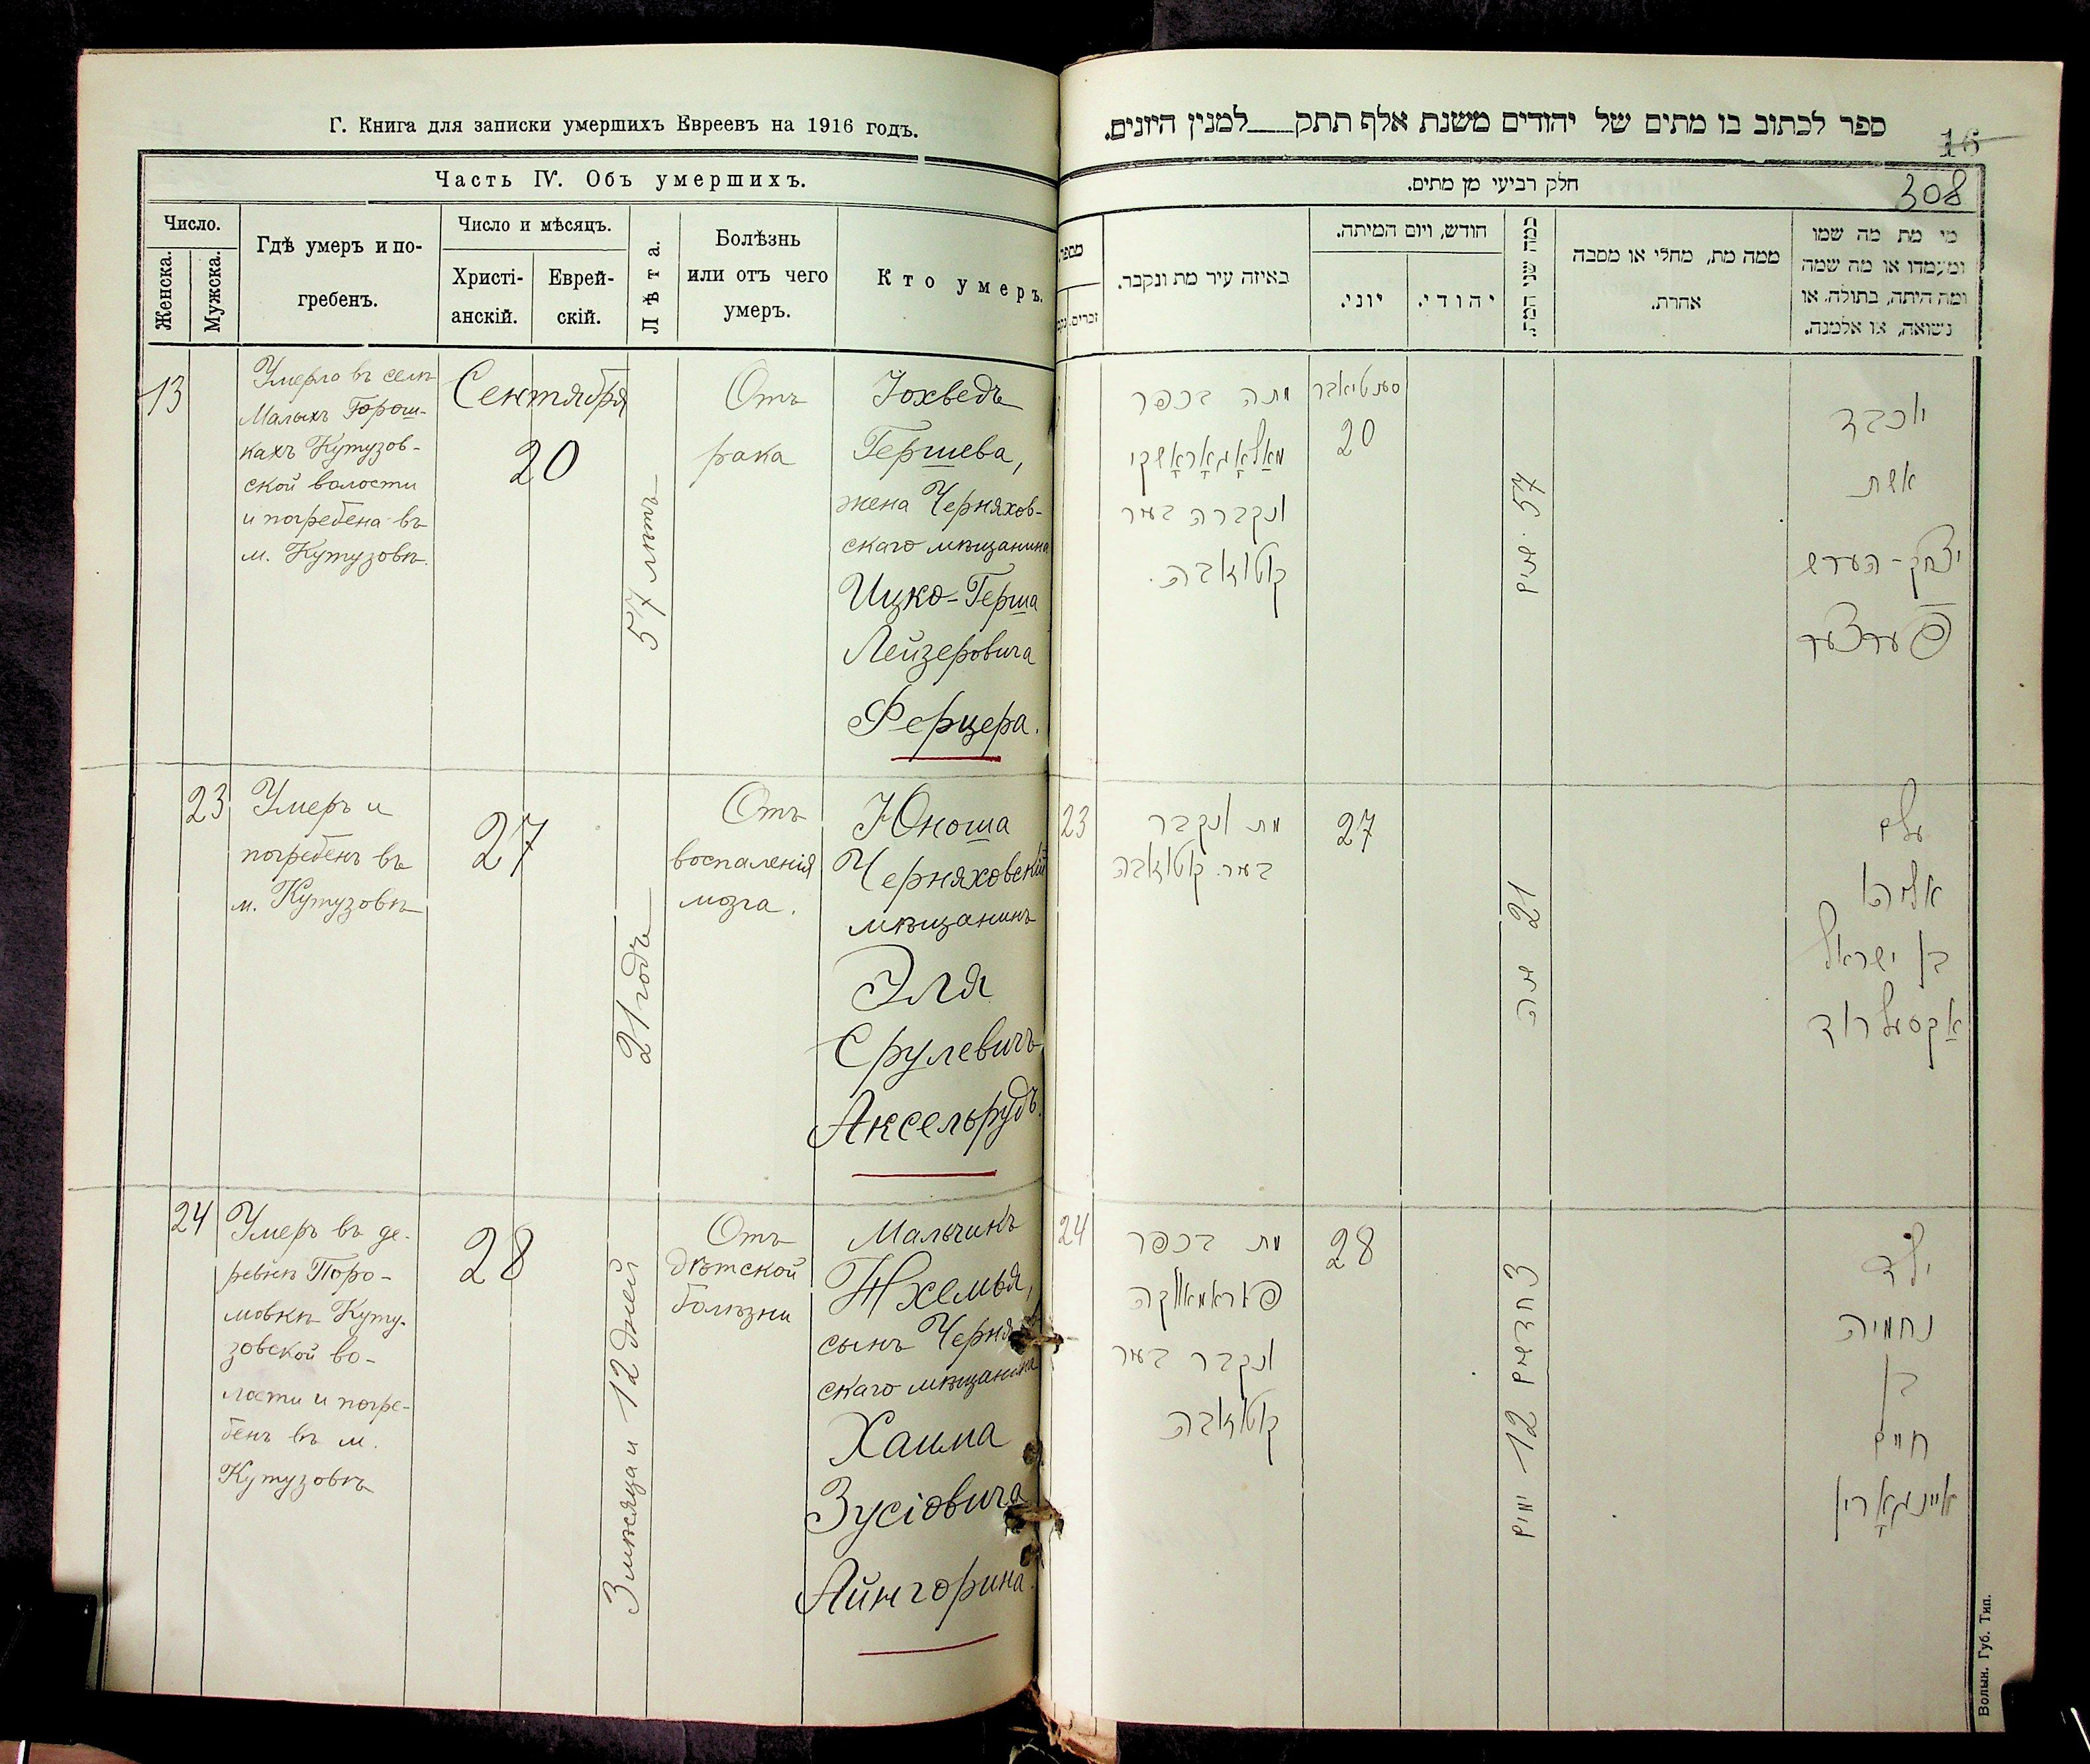 Г. Книга для записки умершихъ Евреевъ на 1916 годъ.
Часть IV. Объ умершихъ.
Число.
Женска.
Мужска.
Гдѣ умеръ и по-
гребенъ.
Число и мѣсяцъ.
Христі-
анскій.
Еврей-
скій.
Лѣта.
Болѣзнь
или отъ чего
умеръ.
Кто умеръ.
13
Умерла въ селѣ
Малыхъ Горош-
кахъ Кутузов-
ской волости
и погребена въ
м. Кутузовѣ.
Сентября
20
57 лѣтъ
Отъ
рака
Іохведъ
Гершева,
жена Черняхов-
скаго мѣщанина
Ицко-Герша
Лейзеровича
Ферцера.
23
Умеръ и
погребенъ въ
м. Кутузовѣ
27
21 годъ
Отъ
воспаленія
мозга.
Юноша
Черняховскій
мѣщанинъ
Эля
Срулевичъ
Аксельрудъ.
24
Умеръ въ де-
ревнѣ Торо-
мовкѣ Куту-
зовской во-
лости и погре-
бенъ въ м.
Кутузовѣ
28
3 мѣсяца и 12 дней
Отъ
дѣтской
болѣзни
Мальчикъ
Нхемья,
сынъ
скаго мѣщанина
Хаима
Зусіовича
Айнгорина.
ספר לכתוב בו מתים של יהודים משנת אלף תתק למנין היונים.
16
308
חלק רביעי מן מתים.
מי מת מה שמו
ומעמדו או מה שמה
ומה היתה, בתולה, או
נשואה, או אלמנה.
ממה מת, מחלי או מסבה
אחרת.
כמה שני המת.
חודש, ויום המיתה.
יהודי.
יוני.
באיזה עיר מת ונקבר.
מספר
זכרים.
יוכבד
אשת
יצחק-הערש
פערצער
57 שנים
סענטיאבר
20
מתה בכפר
מאַלאָגאָראָשקי
ונקברה בעיר
קוטוזאבה.
עלם
אליהו
בן ישראל
אַקסעלרוד
21 שנה
27
מת ונקבר
בעיר קוטוזאבה
23
ילד
נחמיה
בן
חיים
איינגאָרין
3 חדשים 12 ימים
28
מת בכפר
פאראמאווקה
ונקבר בעיר
קוטוזאבה
24
Волын. Губ. Тип.